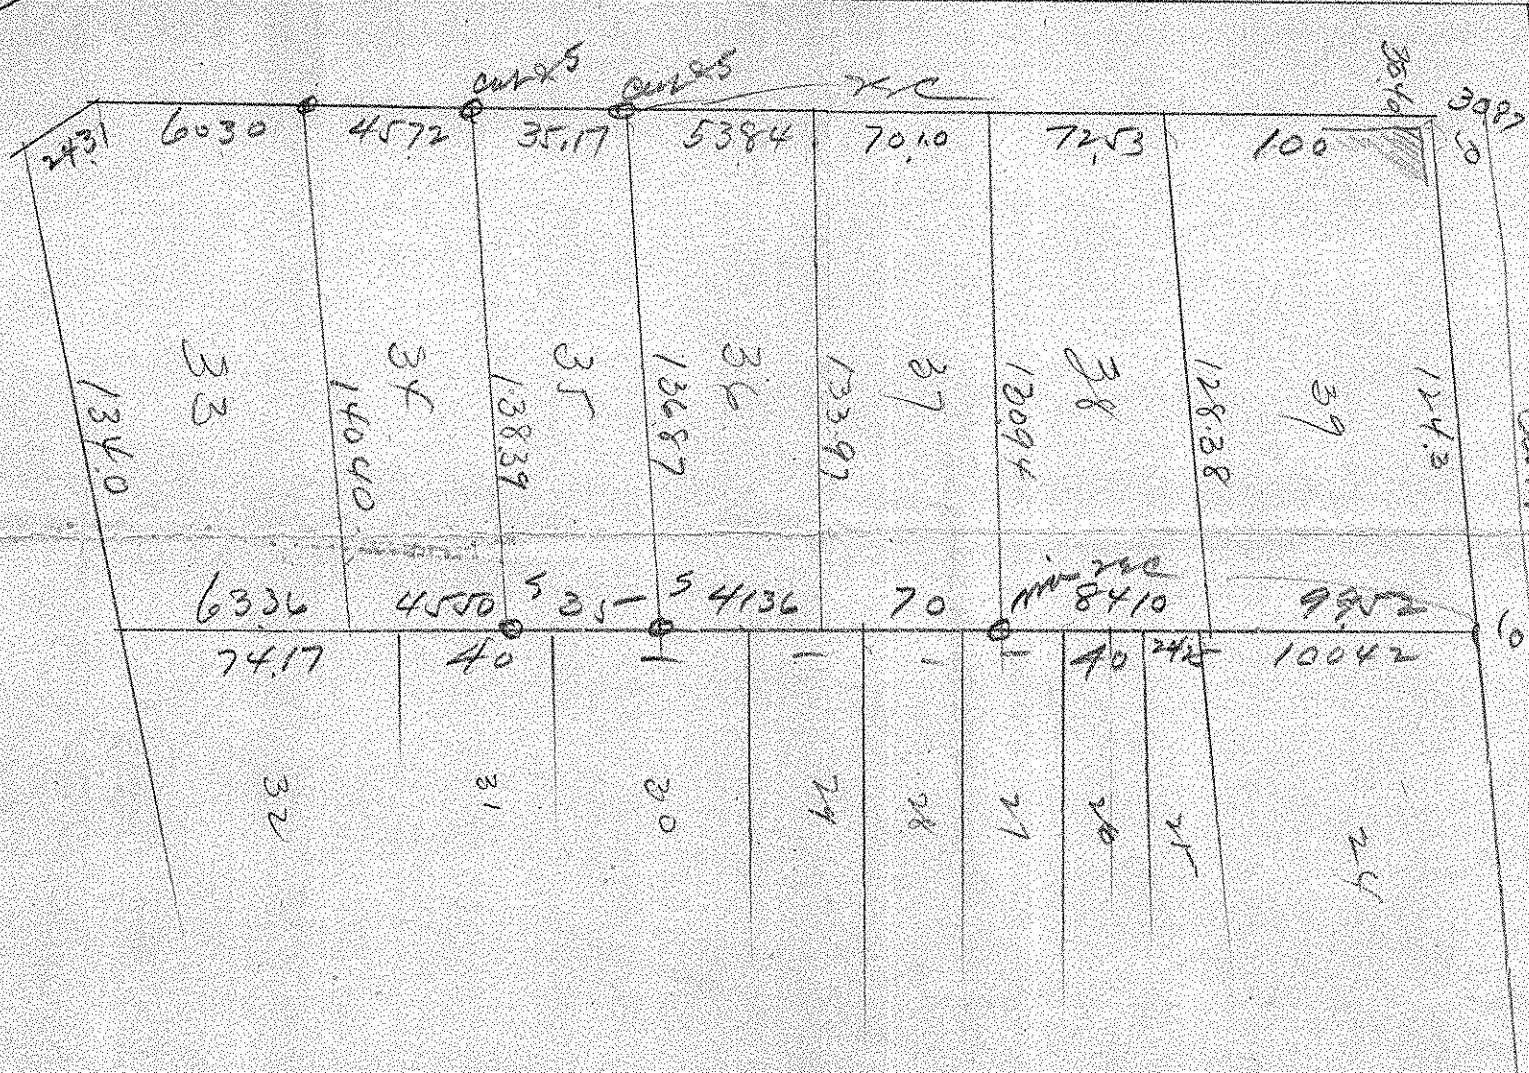 cut x 5 cut x 5
24.31 60.30 45.72 35.17 53.84 70.10 72.53 100
33 34 35 36 37 38 39
134.0 140.40 138.39 136.87 133.97 130.94 128.38 124.3
63.36 45.50 5 35- 5 41.36 70 84.10 99.52
74.17 40 - - - - 40 24.25 100.42
32 31 30 29 28 27 26 25 24